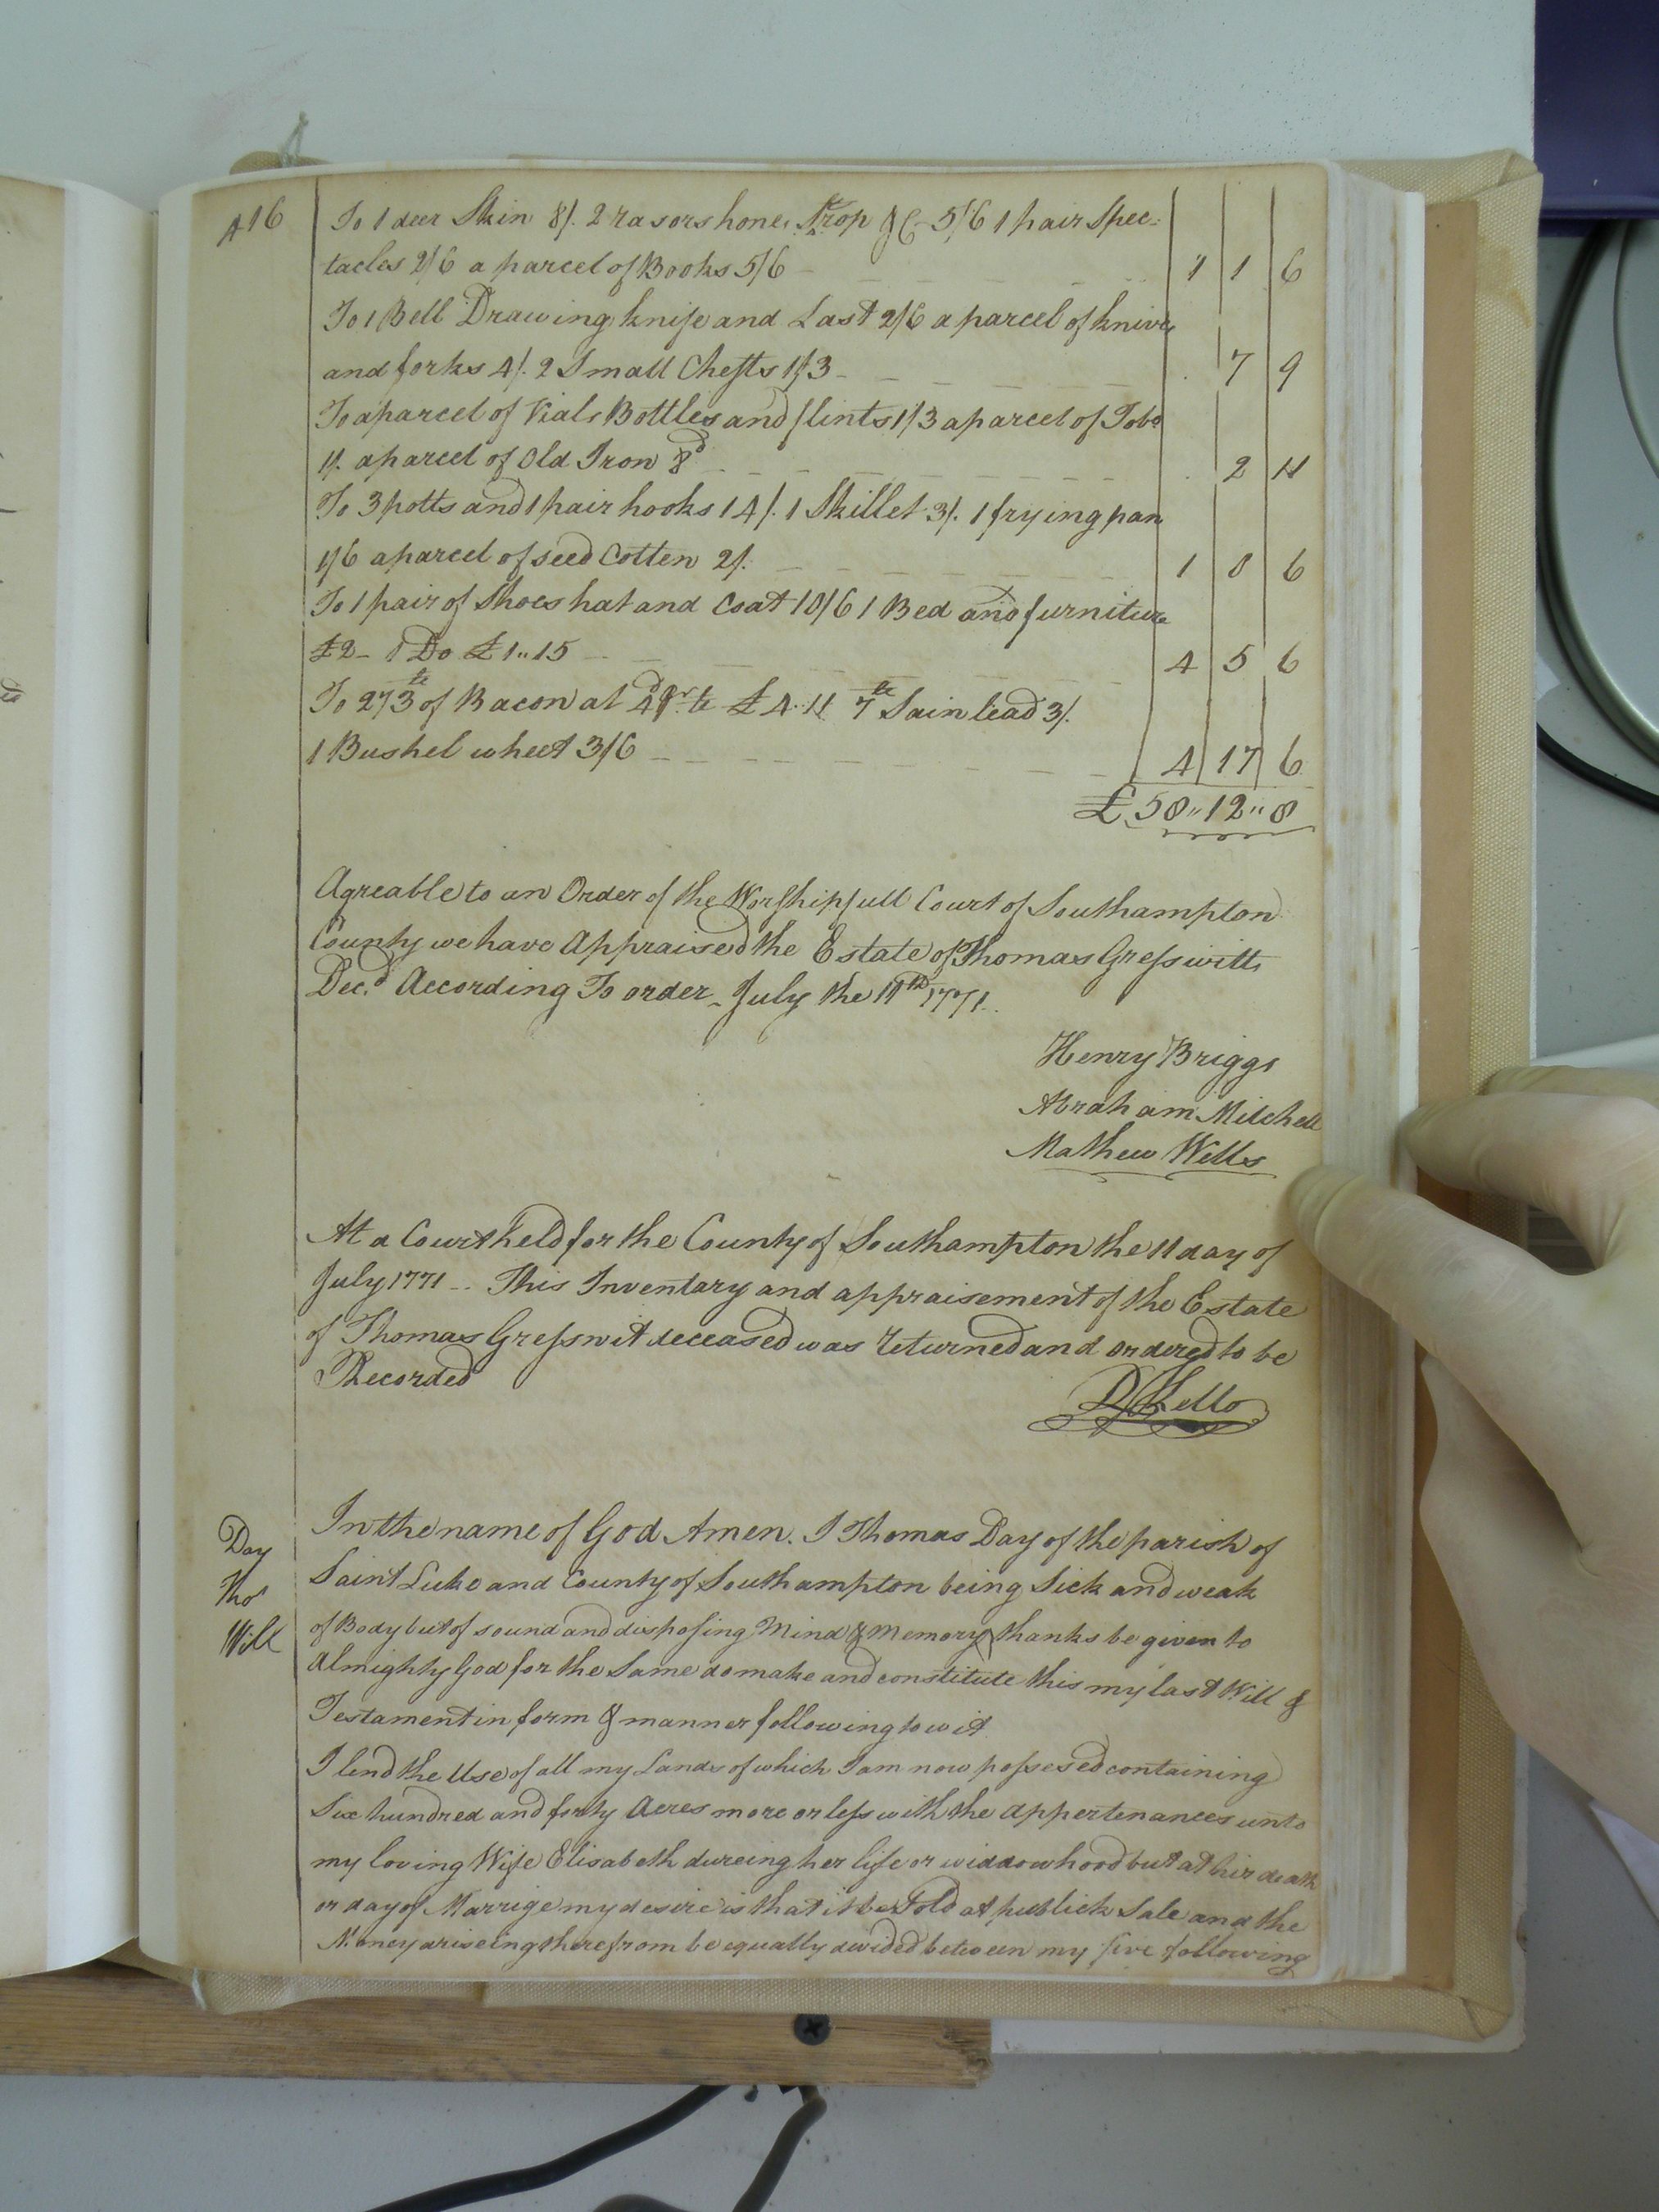 416
To 1 deer Skin 8/. 2 rasors hone, Strop &C 5/6 1 pair Spec=
tacles 2/6 a parcel of Books 5/6 1 1 6
To 1 Bell Drawing knife and Last 2/6 a parcel of knives
and forks 4/. 2 Small Chests 1/3 7 9
To a parcel of Vials Bottles and flints 1/3 a parcel of Tobo
1/. a parcel of Old Iron 8d 2 11
To 3 potts and 1 pair hooks 14/. 1 Skillet 3/. 1 frying pan
1/6 a parcel of seed Cotten 2/. 1 0 6
To 1 pair of Shoes hat and Coat 10/6 1 Bed and furniture
£2- 1 Do £1..15 4 5 6
To 273 lb of Bacon at 4d pr lb £4.11 7 lb Sain lead 3/.
1 Bushel wheet 3/6 4 17 6
£50..12..8
Agreable to an Order of the Worshipfull Court of Southampton
County we have Appraised the Estate of Thomas Gresswitt
Decd. According To order - July the 11th 1771.
Henry Briggs
Abraham Mitchell
Mathew Wells
At a Court held for the County of Southampton the 11 day of
July 1771 -- This Inventary and appraisement of the Estate
of Thomas Gresswit deceased was returned and ordered to be
Recorded
Day
Thos
Will
In the name of God Amen. I Thomas Day of the parish of
Saint Luke and County of Southampton being Sick and weak
of Body but of sound and disposing Mind & Memory thanks be given to
Almighty God for the Same do make and constitute this my last Will &
Testament in form & manner following to wit
I lend the Use of all my Lands of which I am now possesed containing
Six hundred and forty Acres more or less with the appertenances unto
my loving Wife Elisabeth dureing her life or widdowhood but at hir death
or day of Marrige my desire is that it be Sold at publick Sale and the
Money ariseing therefrom be equally devided between my five following